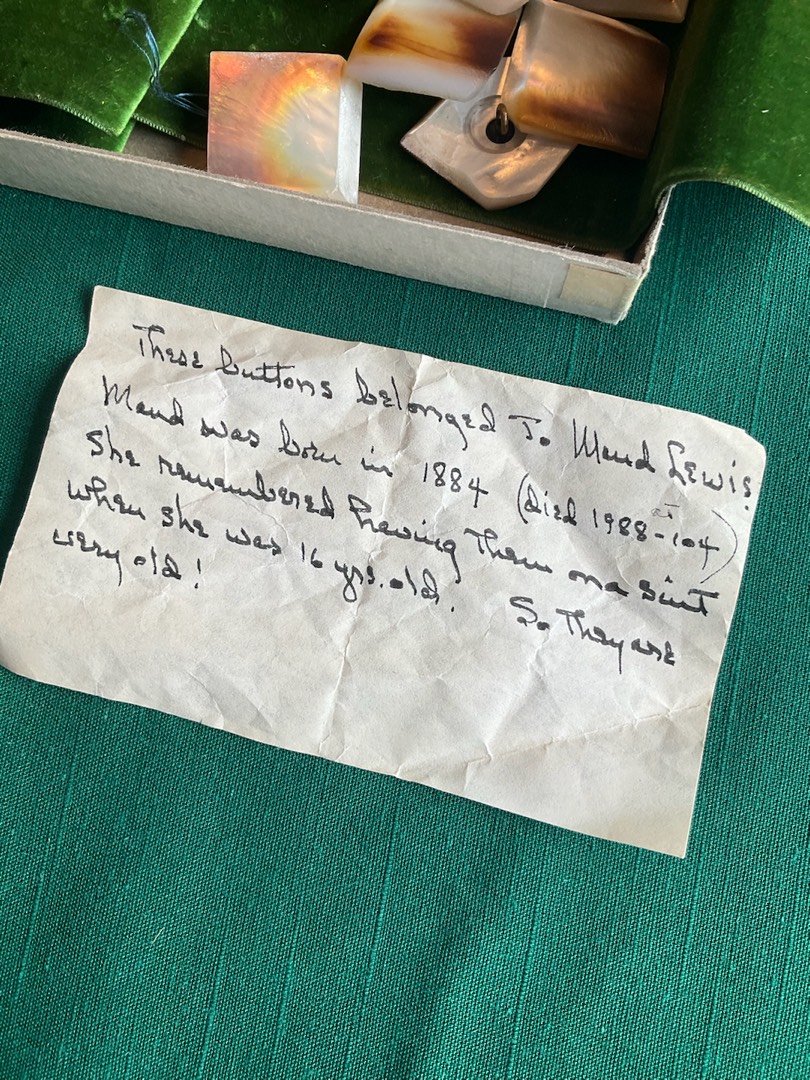 These buttons belonged To Maud Lewis.
Maud was born in 1884 (died 1988-104)
She remembered having Them on a suit
when she was 16 yrs. old. So They are
very old!